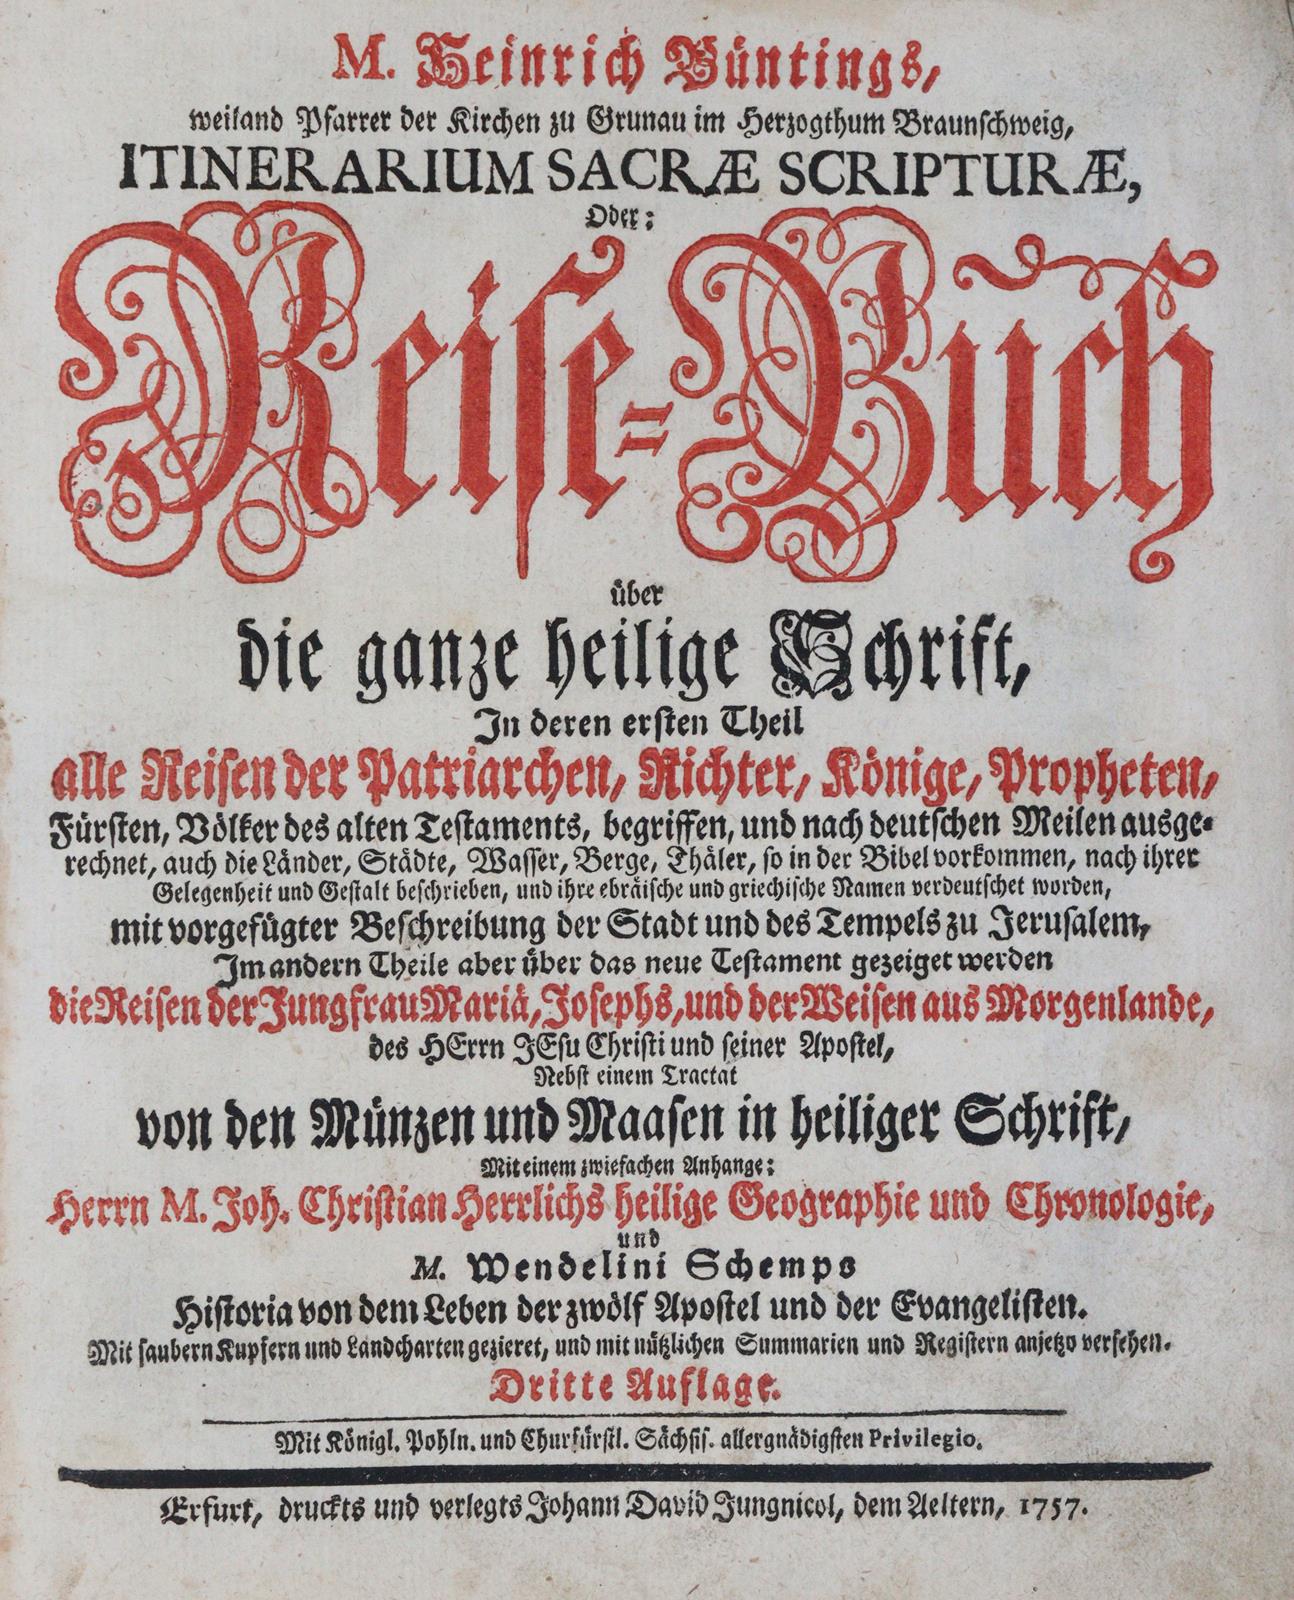 M. Heinrich Büntings,
weiland Pfarrer der Kirchen zu Grunau im Herzogthum Braunschweig,
ITINERARIUM SACRÆ SCRIPTURÆ,
Oder:
Reise-Buch
über
die ganze heilige Schrift,
In deren ersten Theil
alle Reisen der Patriarchen, Richter, Könige, Propheten,
Fürsten, Völker des alten Testaments, begriffen, und nach deutschen Meilen ausge-
rechnet, auch die Länder, Städte, Wasser, Berge, Thäler, so in der Bibel vorkommen, nach ihrer
Gelegenheit und Gestalt beschrieben, und ihre ebräische und griechische Namen verdeutschet worden,
mit vorgefügter Beschreibung der Stadt und des Tempels zu Jerusalem,
Im andern Theile aber über das neue Testament gezeiget werden
die Reisen der Jungfrau Mariä, Josephs, und der Weisen aus Morgenlande,
des HErrn JEsu Christi und seiner Apostel,
Nebst einem Tractat
von den Münzen und Maasen in heiliger Schrift,
Mit einem zwiefachen Anhange:
Herrn M. Joh. Christian Herrlichs heilige Geographie und Chronologie,
und
M. Wendelini Schemps
Historia von dem Leben der zwölf Apostel und der Evangelisten.
Mit saubern Kupfern und Landcharten gezieret, und mit nützlichen Summarien und Registern anjetzo versehen.
Dritte Auflage.
Mit Königl. Pohln. und Churfürstl. Sächsis. allergnädigsten Privilegio.
Erfurt, druckts und verlegts Johann David Jungnicol, dem Aeltern, 1757.